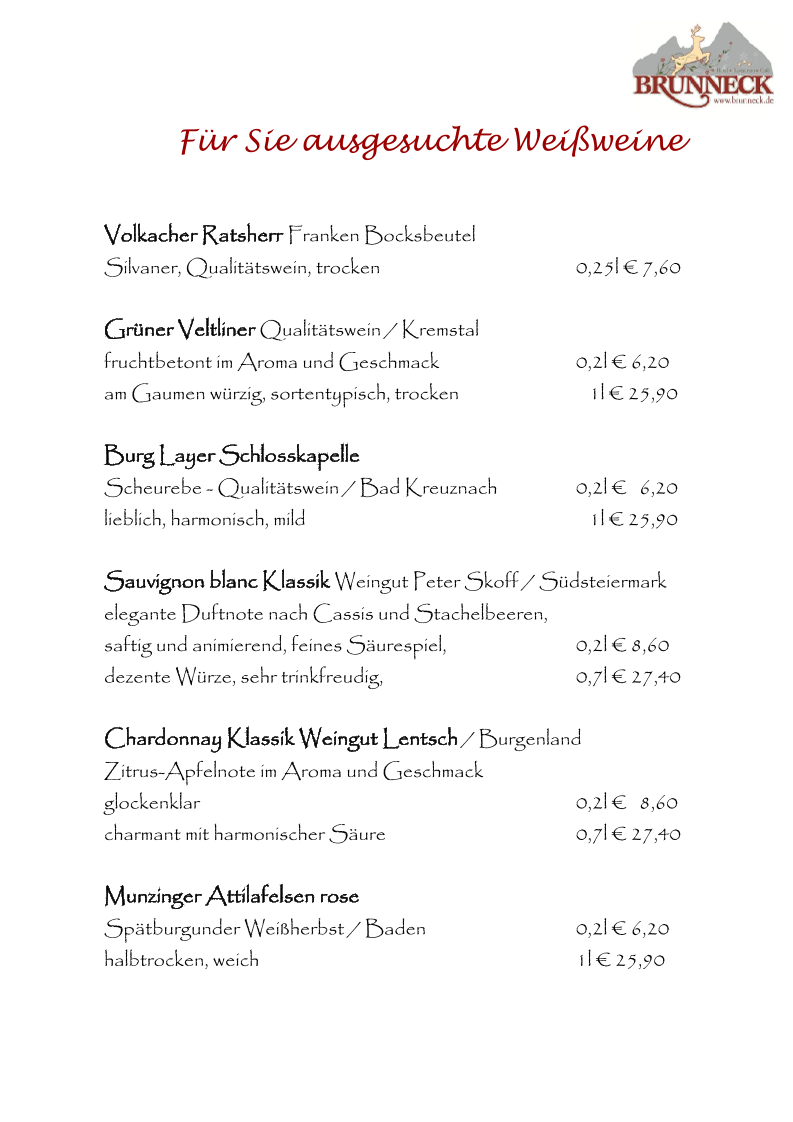 BRUNNECK
www.brunneck.de
Für Sie ausgesuchte Weißweine
Volkacher Ratsherr Franken Bocksbeutel
Silvaner, Qualitätswein, trocken 0,25l € 7,60
Grüner Veltliner Qualitätswein / Kremstal
fruchtbetont im Aroma und Geschmack 0,2l € 6,20
am Gaumen würzig, sortentypisch, trocken 1l € 25,90
Burg Layer Schlosskapelle
Scheurebe - Qualitätswein / Bad Kreuznach 0,2l € 6,20
lieblich, harmonisch, mild 1l € 25,90
Sauvignon blanc Klassik Weingut Peter Skoff / Südsteiermark
elegante Duftnote nach Cassis und Stachelbeeren,
saftig und animierend, feines Säurespiel, 0,2l € 8,60
dezente Würze, sehr trinkfreudig, 0,7l € 27,40
Chardonnay Klassik Weingut Lentsch / Burgenland
Zitrus-Apfelnote im Aroma und Geschmack
glockenklar 0,2l € 8,60
charmant mit harmonischer Säure 0,7l € 27,40
Munzinger Attilafelsen rose
Spätburgunder Weißherbst / Baden 0,2l € 6,20
halbtrocken, weich 1l € 25,90